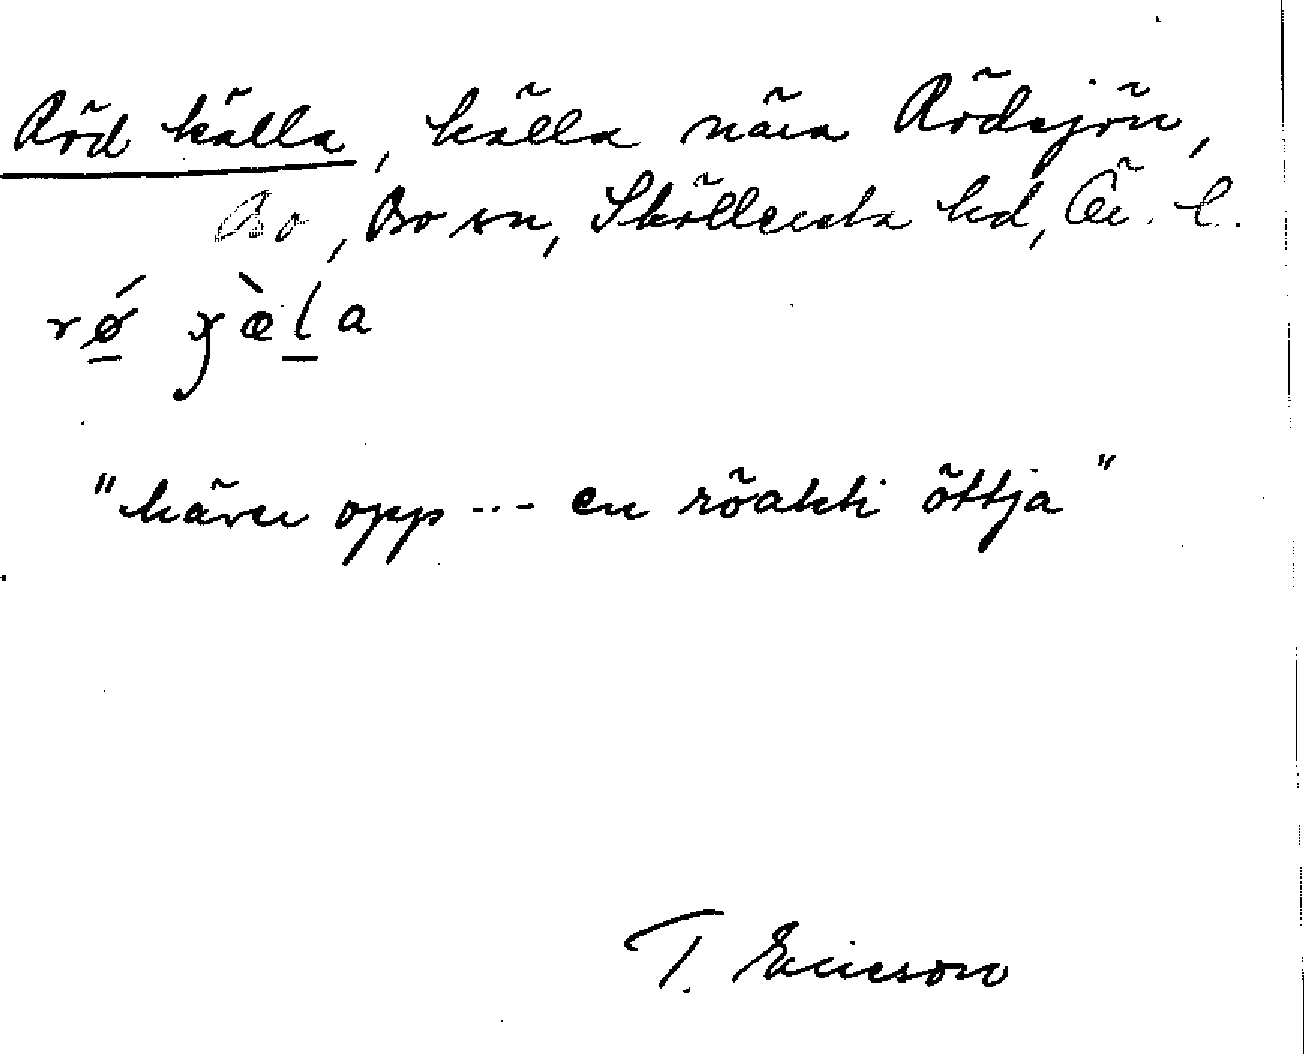 Röd källa, källa nära Rödsjön,
Bo, Bo sn, Sköllersta hd, Ör. l.
rǿ ɣæ̀la
"kärn opp --- en röakti öttja"
T. Ericson